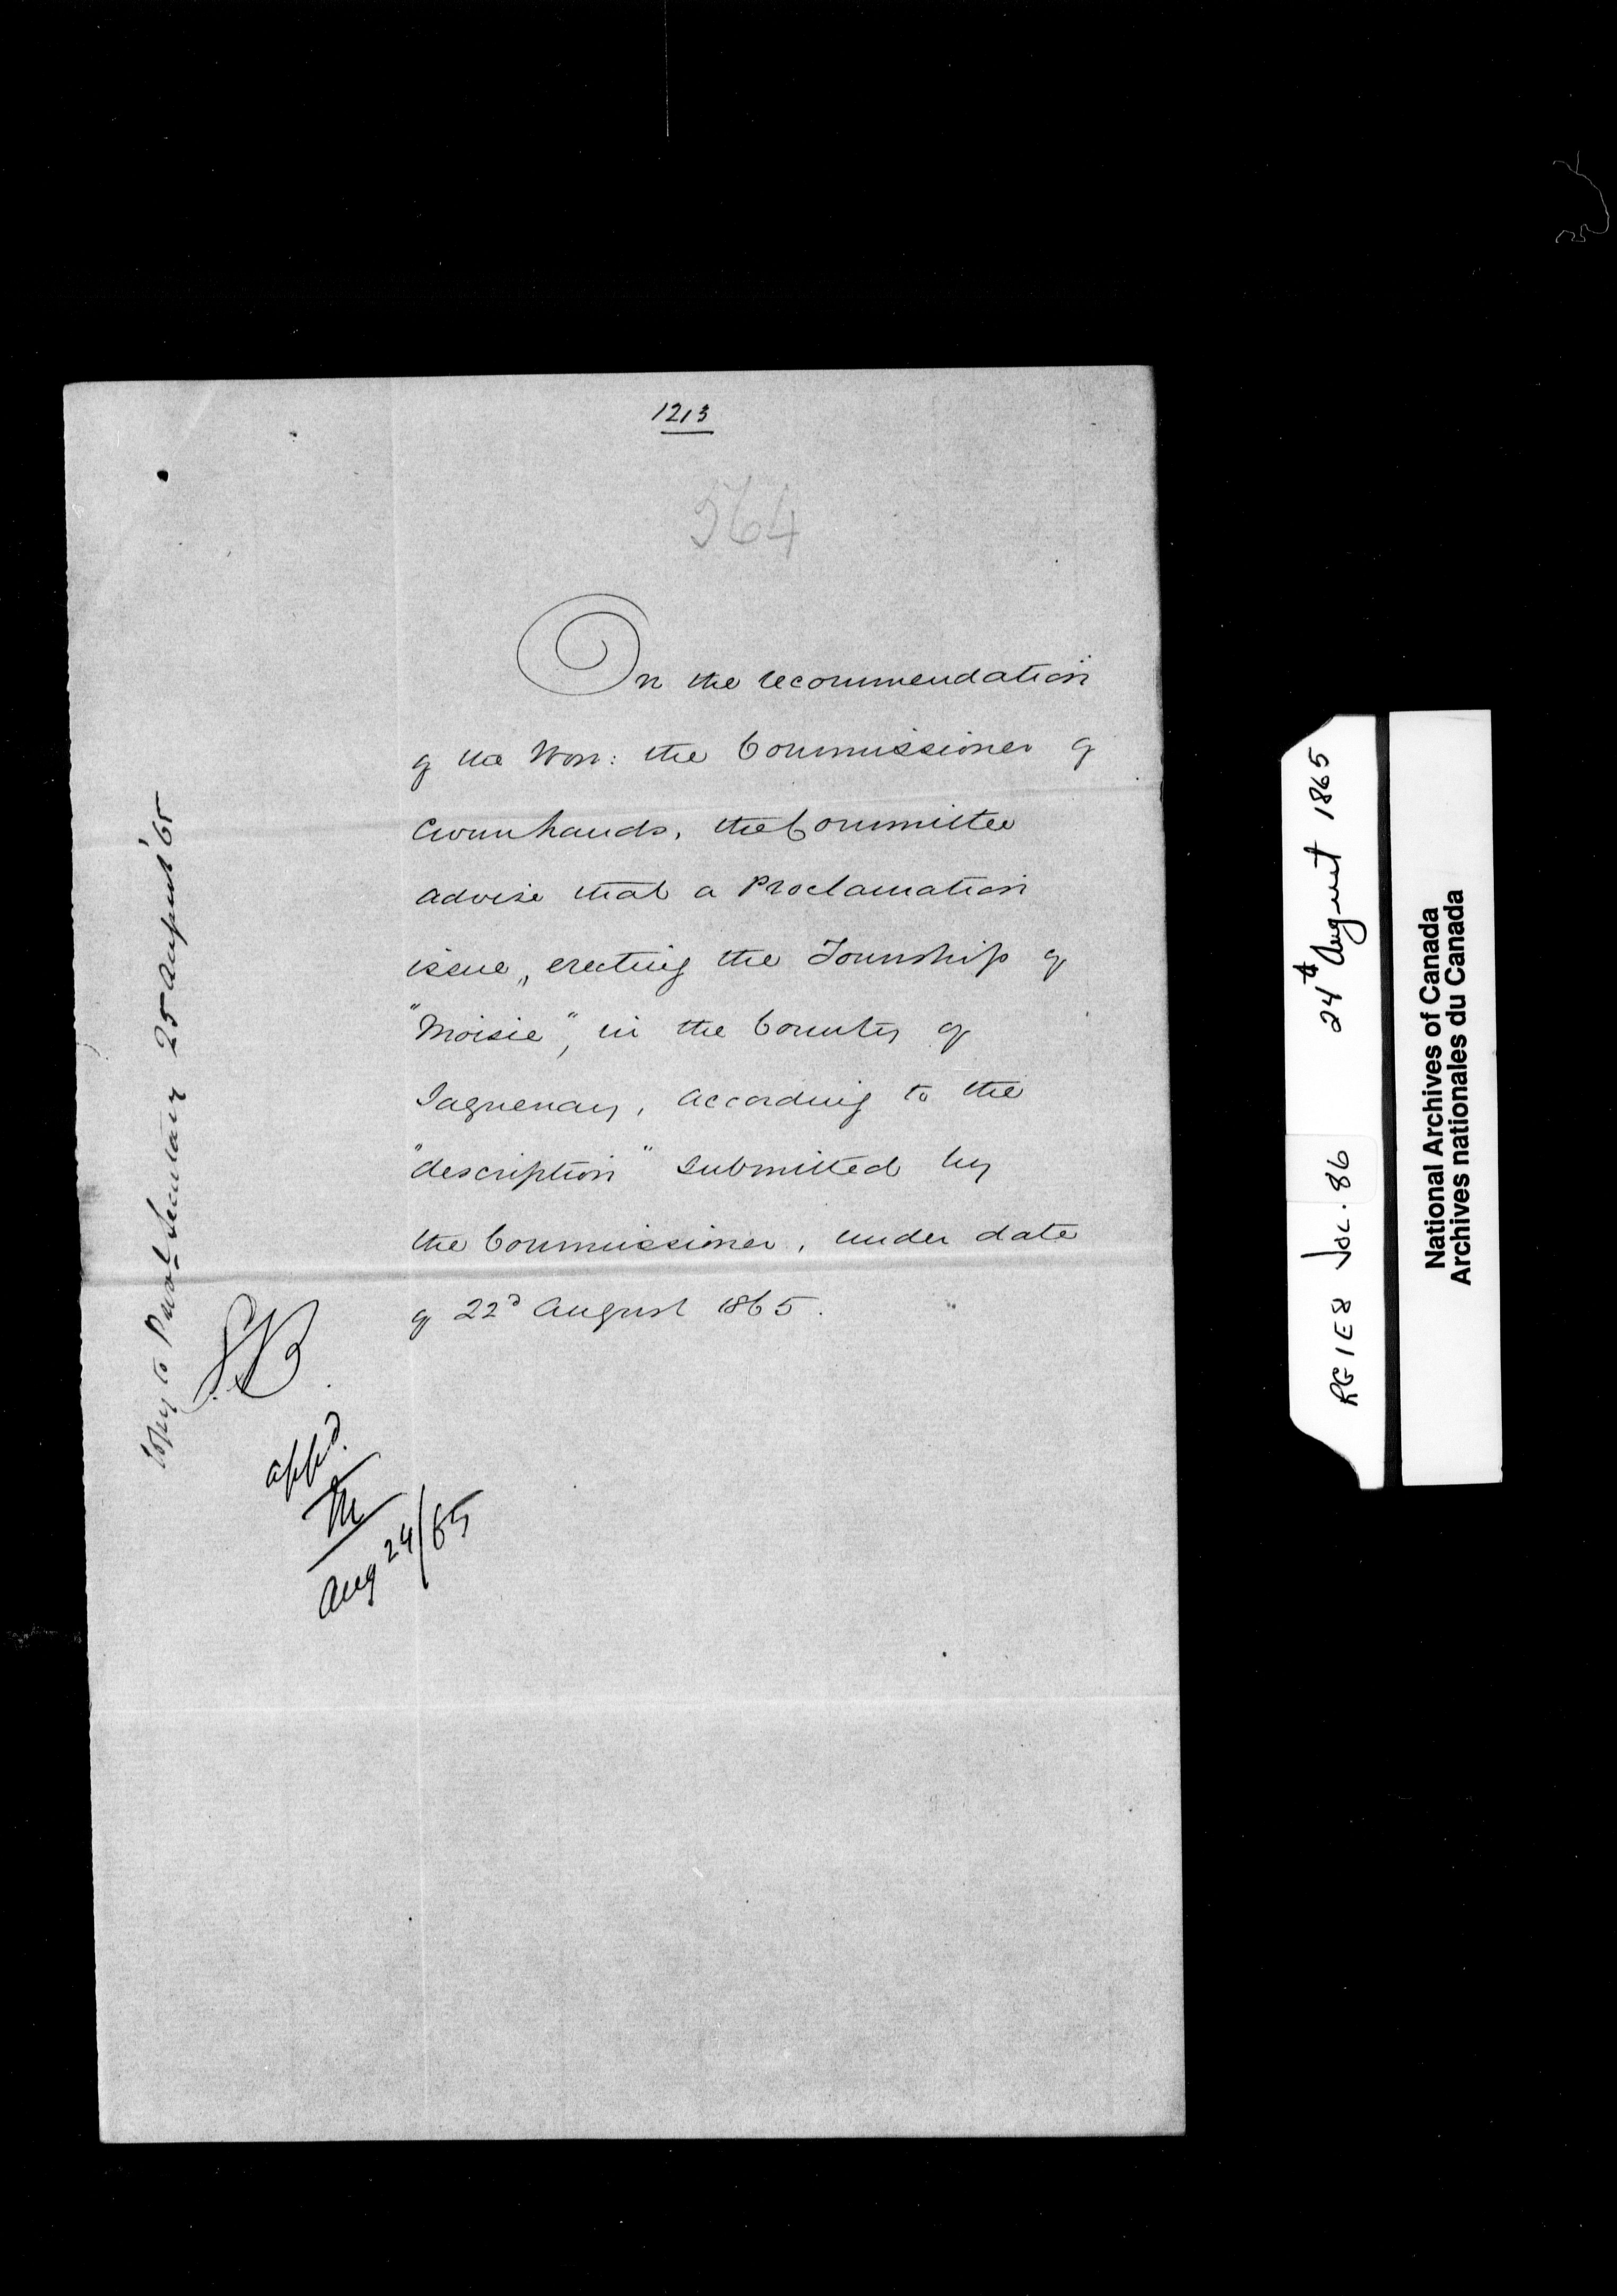 1213
564
On the recommendation
of the Hon: the Commissioner of
Crown Lands, the Committee
advise that a Proclamation
issue, erecting the Township of
"Moisie", in the County of
Saguenay, according to the
"description" submitted by
the Commissioner, under date
of 22d August 1865.
Copy to Provl Secretary 25 August '65
appd.
M
Aug 24/65
RG 1 E 8 Vol. 86 24th August 1865
National Archives of Canada
Archives nationales du Canada